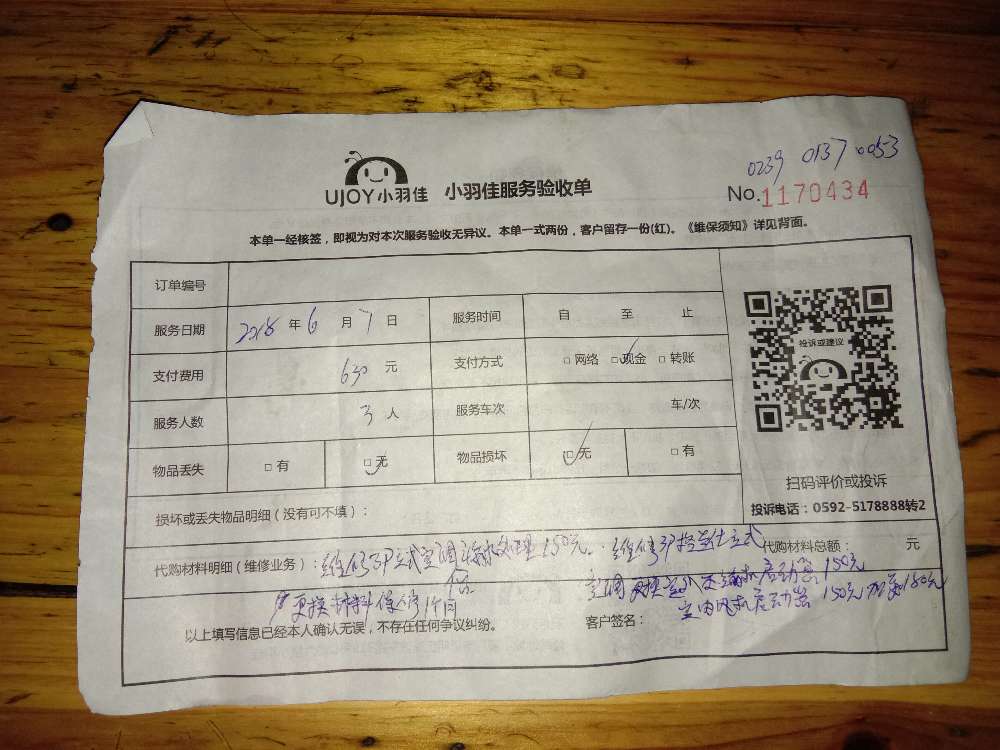 0239 0137 0053
UJOY小羽佳 小羽佳服务验收单
No.1170434
本单一经核签，即视为对本次服务验收无异议。本单一式两份，客户留存一份(红)。《维保须知》详见背面。
订单编号
服务日期 2018 年 6 月 7 日 服务时间 自 至 止
支付费用 630 元 支付方式 □ 网络 □ 现金 □ 转账
投诉或建议
服务人数 3 人 服务车次 车/次
物品丢失 □ 有 □ 无 物品损坏 □ 无 □ 有
扫码评价或投诉
投诉电话：0592-5178888转2
损坏或丢失物品明细（没有可不填）：
代购材料明细（维修业务）： 维修3P立式空调 150元 维修3P 立式 代购材料总额： 元
空调 启动器 150元
更换材料保修1个月 室内风机启动器 150元 180元
以上填写信息已经本人确认无误，不存在任何争议纠纷。 客户签名：